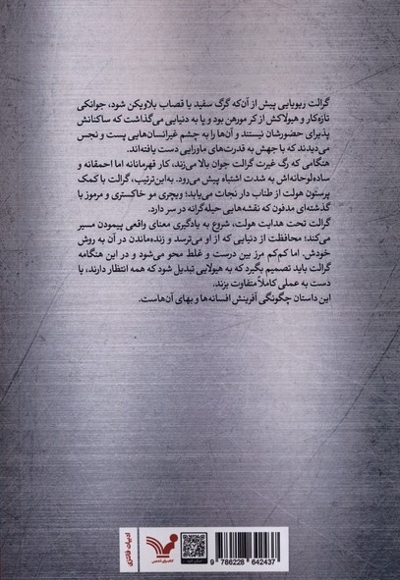 گرالت ریویایی پیش از آن‌که گرگ سفید یا قصاب بلاویکن شود، جوانکی
تازه‌کار و هیولاکش از کر مورهن بود و پا به دنیایی می‌گذاشت که ساکنانش
پذیرای حضورشان نیستند و آن‌ها را به چشم غیرانسان‌هایی پست و نجس
می‌دیدند که با جهش به قدرت‌های ماورایی دست یافته‌اند.
هنگامی که رگ غیرت گرالت جوان بالا می‌زند، کار قهرمانانه اما احمقانه و
ساده‌لوحانه‌اش به شدت اشتباه پیش می‌رود. به‌این‌ترتیب، گرالت با کمک
پرستون هولت از طناب دار نجات می‌یابد؛ ویچری مو خاکستری و مرموز با
گذشته‌ای مدفون که نقشه‌هایی حیله‌گرانه در سر دارد.
گرالت تحت هدایت هولت، شروع به یادگیری معنای واقعی پیمودن مسیر
می‌کند؛ محافظت از دنیایی که از او می‌ترسد و زنده‌ماندن در آن به روش
خودش. اما کم‌کم مرز بین درست و غلط محو می‌شود و در این هنگامه
گرالت باید تصمیم بگیرد که به هیولایی تبدیل شود که همه انتظار دارند، یا
دست به عملی کاملاً متفاوت بزند.
این داستان چگونگی آفرینش افسانه‌ها و بهای آن‌هاست.
ادبیات فانتزی
کتابسرای تندیس
9 786228 642437